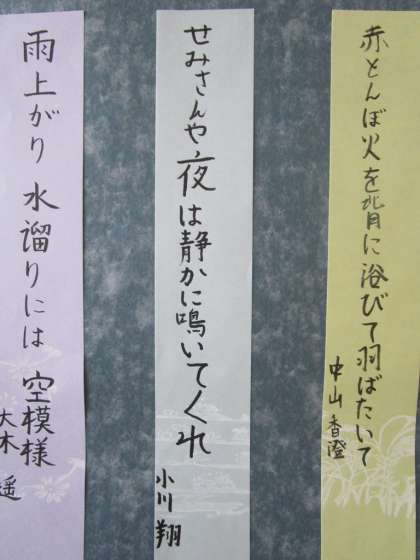 赤とんぼ火を背に浴びて羽ばたいて
中山香澄
せみさんや夜は静かに鳴いてくれ
小川翔
雨上がり水溜りには空模様
大木遥